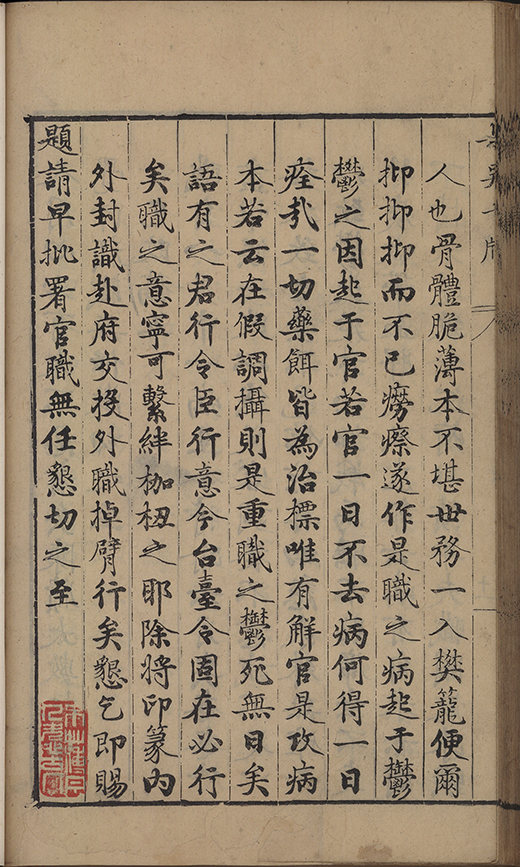 人也骨體脆薄本不堪世務一入樊籠便爾
抑抑抑而不已癆瘵遂作是職之病起于鬱
鬱之因起于官若官一日不去病何得一日
痊㢤一切藥餌皆為治標唯有解官是攻病
本若云在假調攝則是重職之鬱死無日矣
語有之君行令臣行意今台臺令固在必行
矣職之意寧可繫絆枷杻之耶除將印篆內
外封識赴府交投外職掉臂行矣懇乞即賜
題請早批署官職無任懇切之至